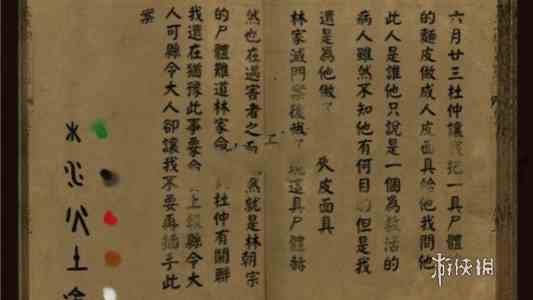 六月廿三杜仲讓我把一具尸體
的麵皮做成人皮面具給他我問他
此人是誰他只說是一個為救活的
病人雖然不知他有何目的但是我
還是為他做了 皮面具
林家滅門案後 這具尸體赫
然也在遇害者之 然就是林朝宗
的尸體難道林家命 杜仲有關聯
我還在猶豫此事要 上報縣令大
人可縣令大人卻讓我不要再插手此
案
木
火
土
金
游侠网